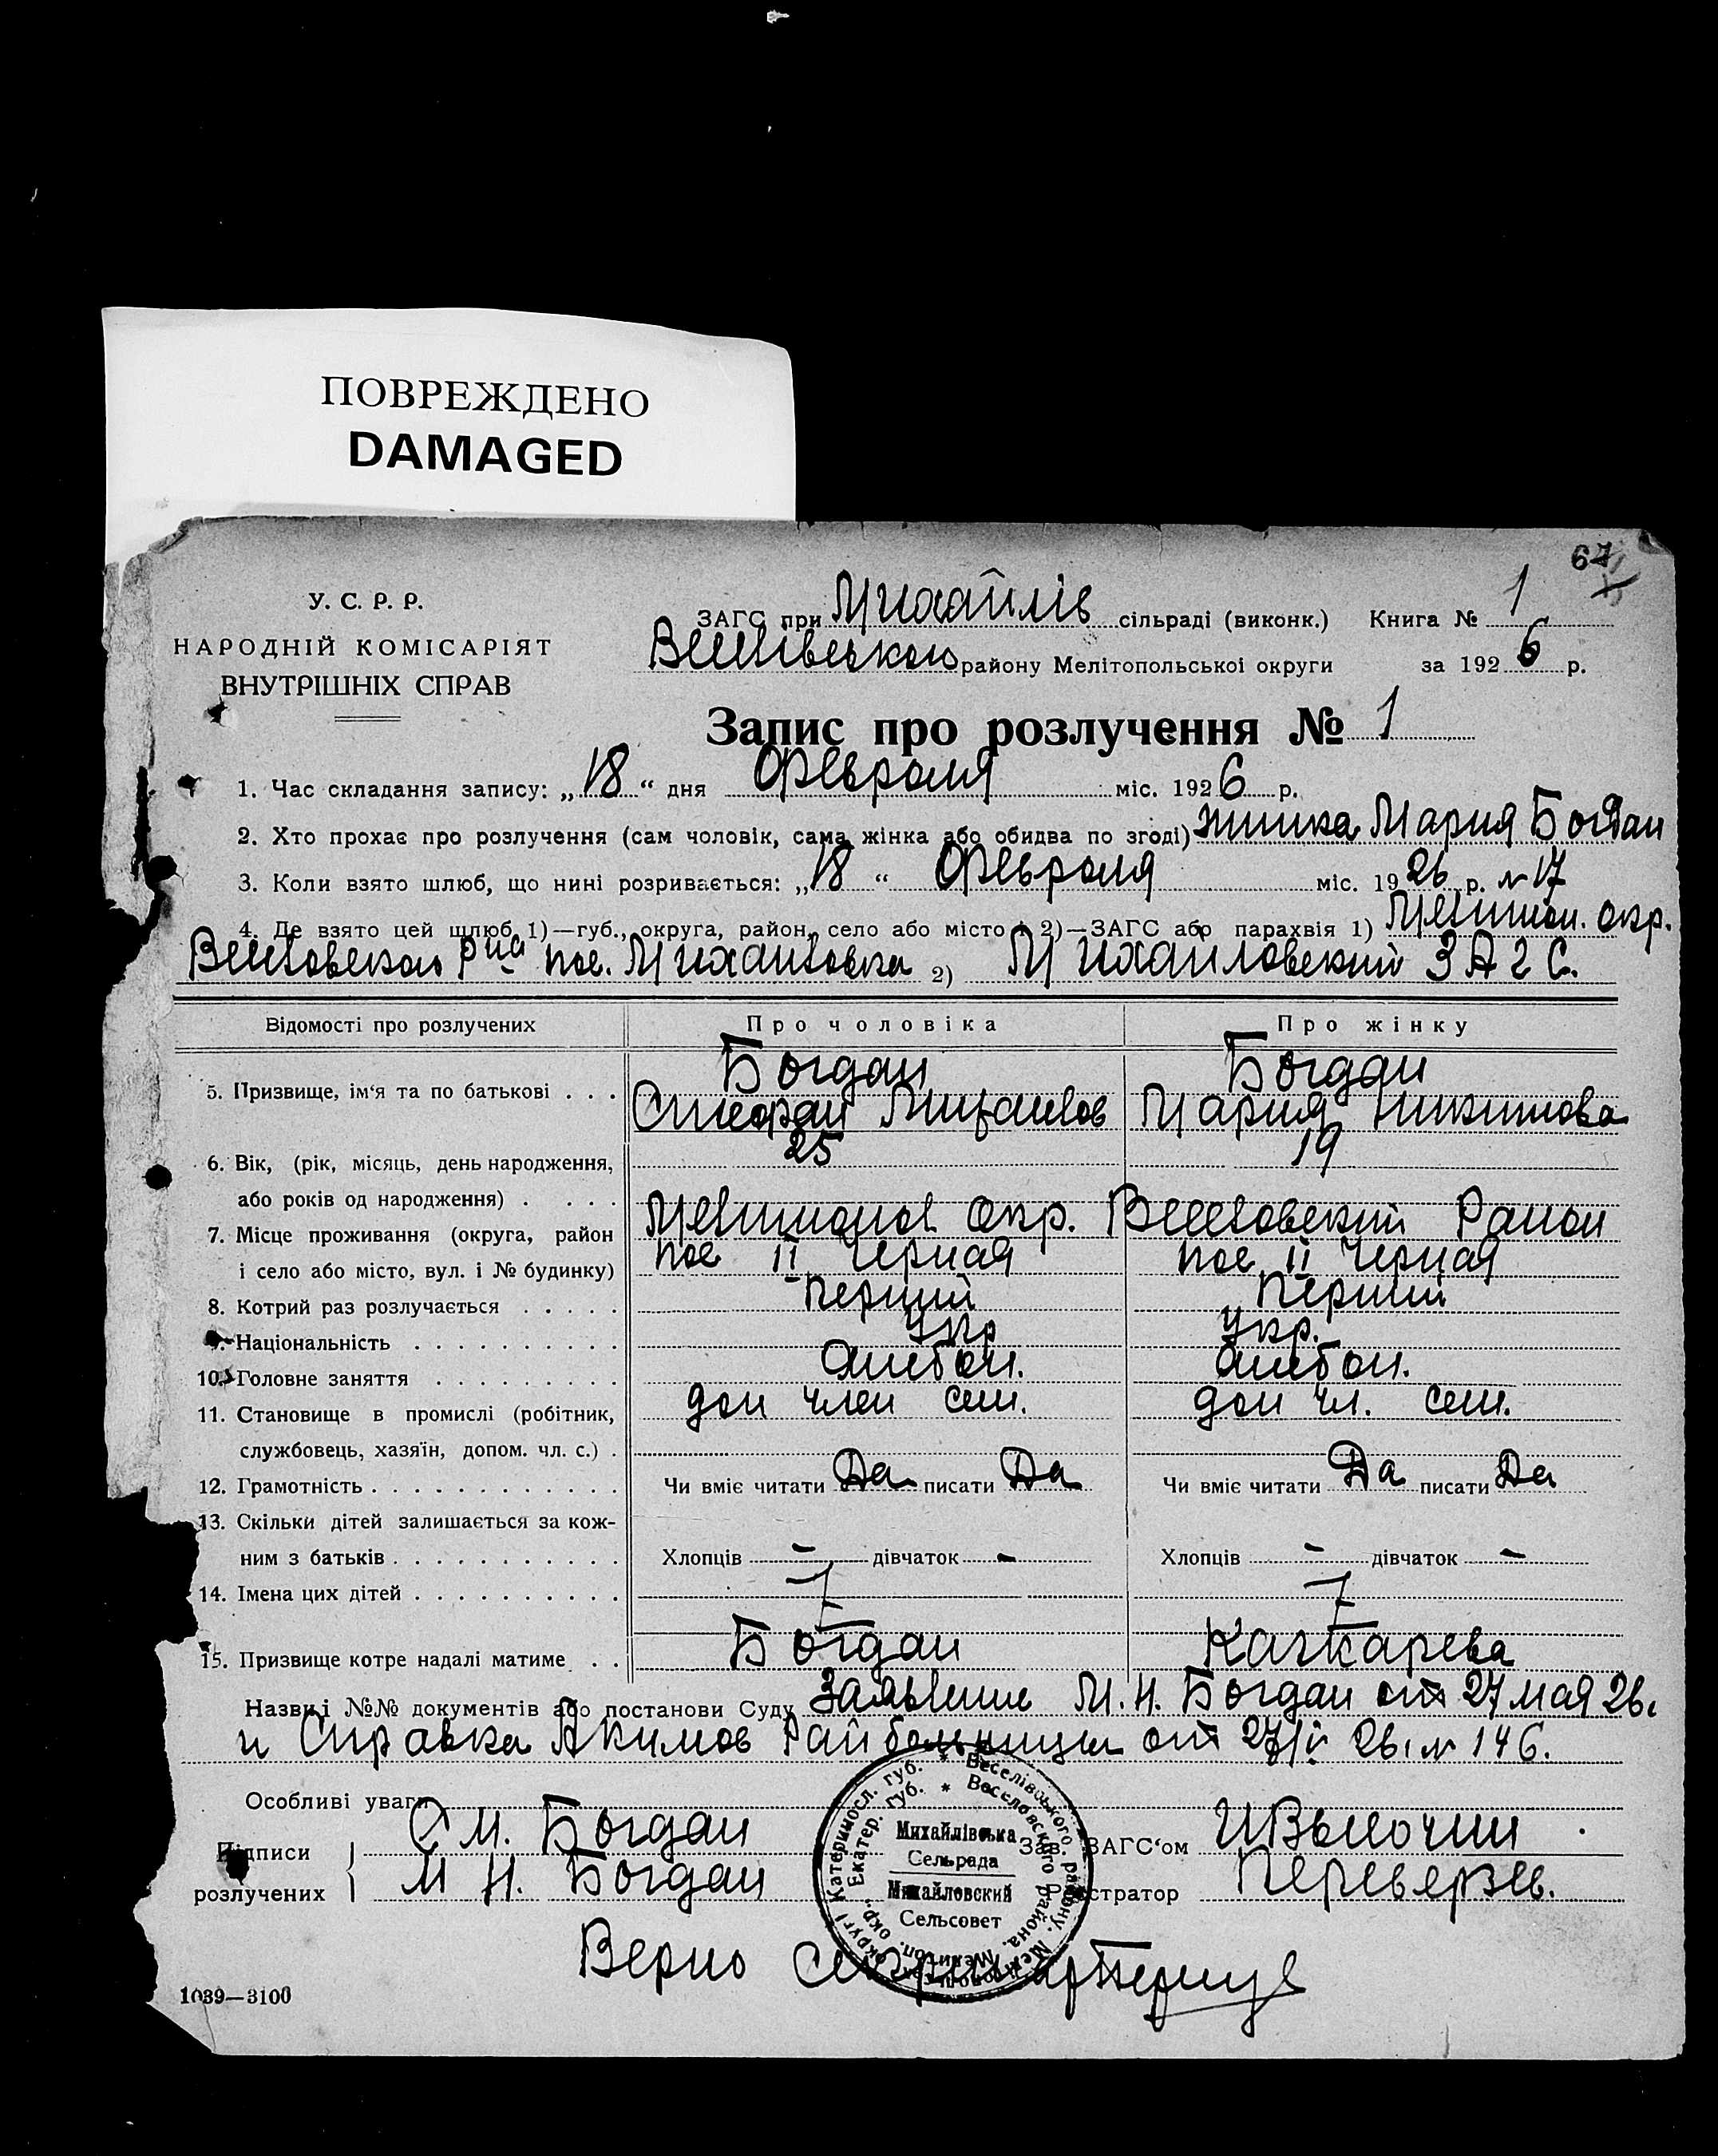 ПОВРЕЖДЕНО
DAMAGED
67
У. С. Р. Р.
НАРОДНІЙ КОМІСАРІЯТ
ВНУТРІШНІХ СПРАВ
ЗАГС при Михайлів сільраді (виконк.) Книга № 1
району Мелітопольської округи за 1926 р.
Запис про розлучення № 1
1. Час складання запису: „18“ дня Февраля міс. 1926 р.
2. Хто прохає про розлучення (сам чоловік, сама жінка або обидва по згоді) жинка Мария Богдан
3. Коли взято шлюб, що нині розривається: „18“ Февраля міс. 1926 р. № 17
4. Де взято цей шлюб 1)—губ., округа, район, село або місто і 2)—ЗАГС або парахвія 1) Мелитоп. окр.
Веселовского р на пос. Михайловка 2) Михайловский ЗАГС.
Відомості про розлучених Про чоловіка Про жінку
5. Призвище, ім'я та по батькові . . . Богдан Богдан
Михайлов Мария Никитовна
6. Вік, (рік, місяць, день народження, 25 19
або років од народження) . . . . .
7. Місце проживання (округа, район Мелитопол. окр. Веселовский Район
і село або місто, вул. і № будинку) пос II Черная пос II Черная
8. Котрий раз розлучається . . . . . Перший Перший
9. Національність . . . . . . . . . . Укр Укр.
10. Головне заняття . . . . . . . . .
11. Становище в промислі (робітник, доп член сем. доп чл. сем.
службовець, хазяїн, допом. чл. с.) .
12. Грамотність . . . . . . . . . . . . Чи вміє читати Да писати Да Чи вміє читати Да писати Да
13. Скільки дітей залишається за кож-
ним з батьків . . . . . . . . . . . Хлопців — дівчаток — Хлопців — дівчаток —
14. Імена цих дітей . . . . . . . . . .
15. Призвище котре надалі матиме . . Богдан Качкарева
Назви і №№ документів або постанови Суду Заявление М. Н. Богдан от 27 мая 26.
и Справка Акимов Райбольницы от 26. № 146.
Особливі уваги
Підписи С М. Богдан Зав. ЗАГС'ом
розлучених М Н. Богдан Реєстратор Переверзев.
Катериносл. губ. * Веселівського району.
Екатер. губ. * Веселовского района.
Михайлівська
Сельрада
Михайловский
Сельсовет
Верно
1039—3100